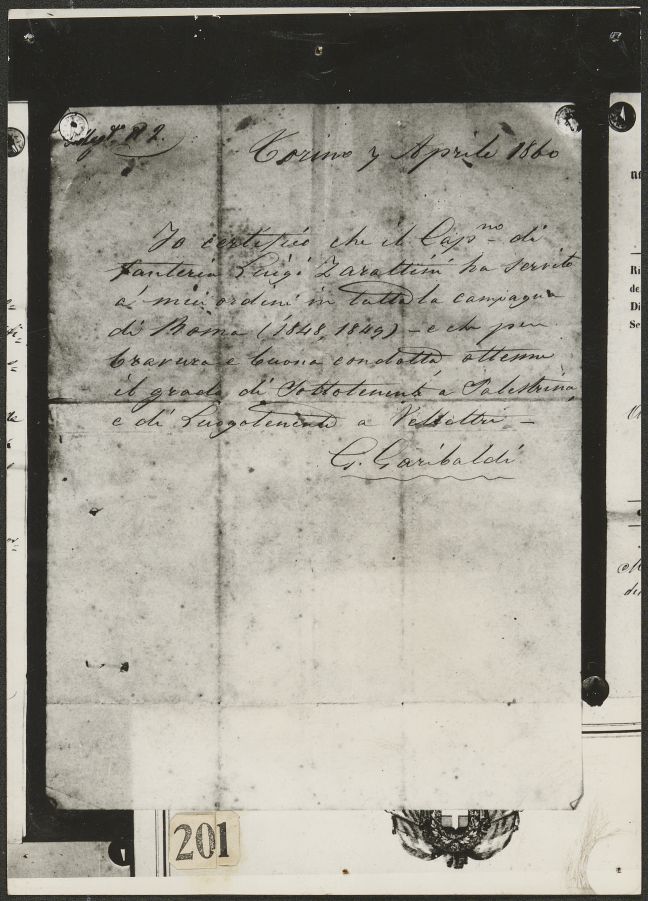 Torino 7 Aprile 1860
Io certifico che il Cap.no di
fanteria Luigi Zarattini ha servito
ai miei ordini in tutta la campagna
di Roma (1848, 1849) – e che per
bravura e buona condotta ottenne
il grado di Sottotenente a Palestrina
e di Luogotenente a Velletri –
G. Garibaldi
201